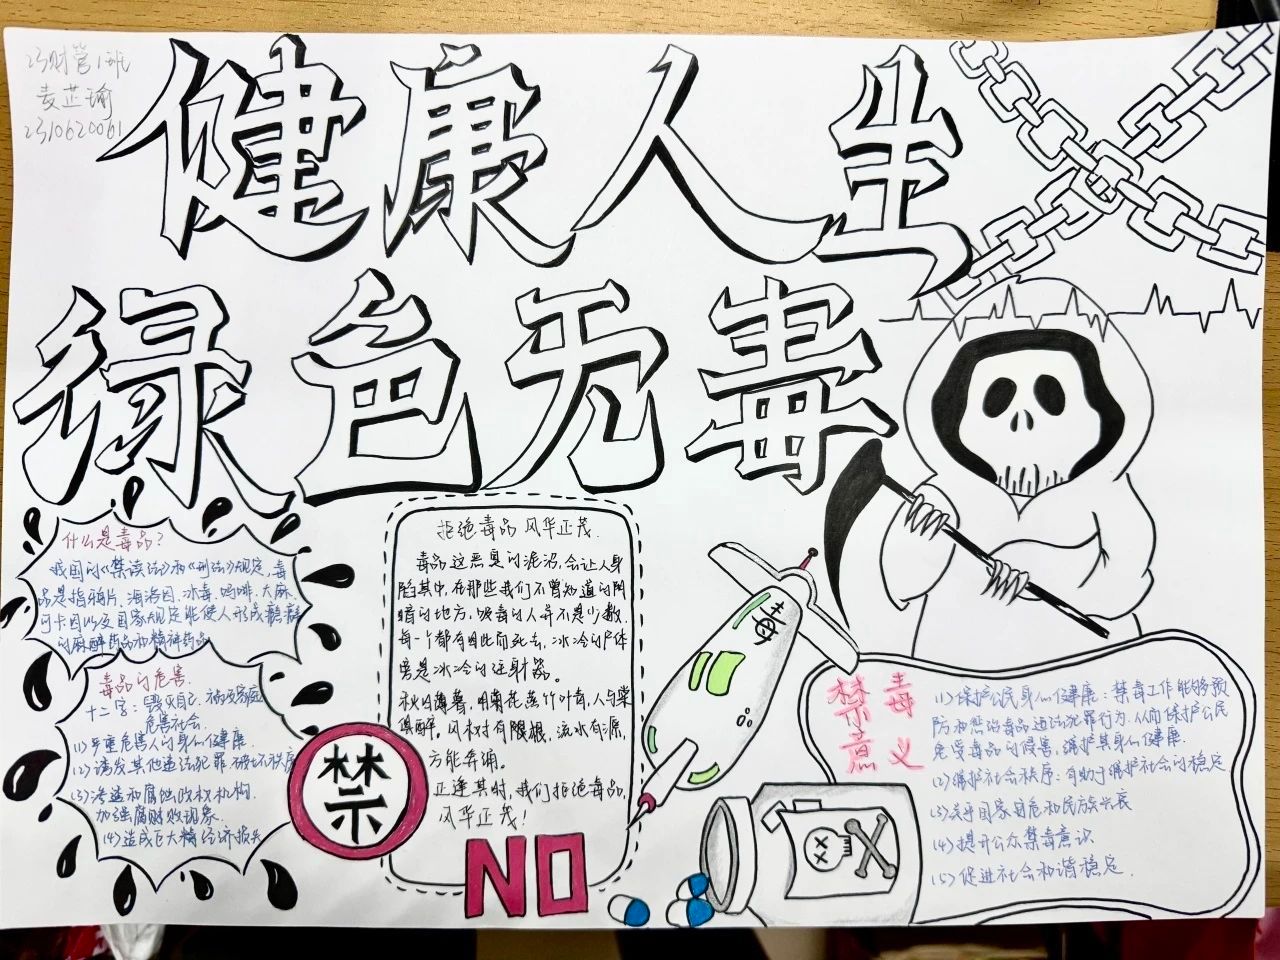 23财管1班
麦芷瑜
2310620061
健康人生
绿色无毒
什么是毒品?
我国的《禁读法》和《刑法》规定,毒
品是指鸦片、海洛因、冰毒、吗啡、大麻、
可卡因以及国家规定能使人形成瘾癖
的麻醉药品和精神药品
毒品的危害
十二字: 毁灭自己 祸及家庭
危害社会.
(1)严重危害人的身心健康.
(2)诱发其他违法犯罪 破坏秩序
(3)渗透和腐蚀政权机构.
加强腐败现象.
(4)造成巨大经济损失
禁
拒绝毒品 风华正茂.
毒品这恶臭的泥沼,会让人身
陷其中,在那些我们不曾知道的阴
暗的地方,吸毒的人并不是少数,
每一个都有因此而死去,冰冷的尸体
旁是冰冷的注射器。
秋日薄暮,用菊花煮竹叶青,人与
俱醉。风树有限根,流水有源,
方能奔涌.
正逢其时,我们拒绝毒品,
风华正茂!
NO
毒
禁毒
意义
(1)保护公民身心健康:禁毒工作能够预
防和惩治毒品违法犯罪行为,从而保护公民
免受毒品的侵害,维护其身心健康.
(2)维护社会秩序:有助于维护社会的稳定
(3)关乎国家安危和民族兴衰
(4)提升公众禁毒意识
(5)促进社会和谐稳定.